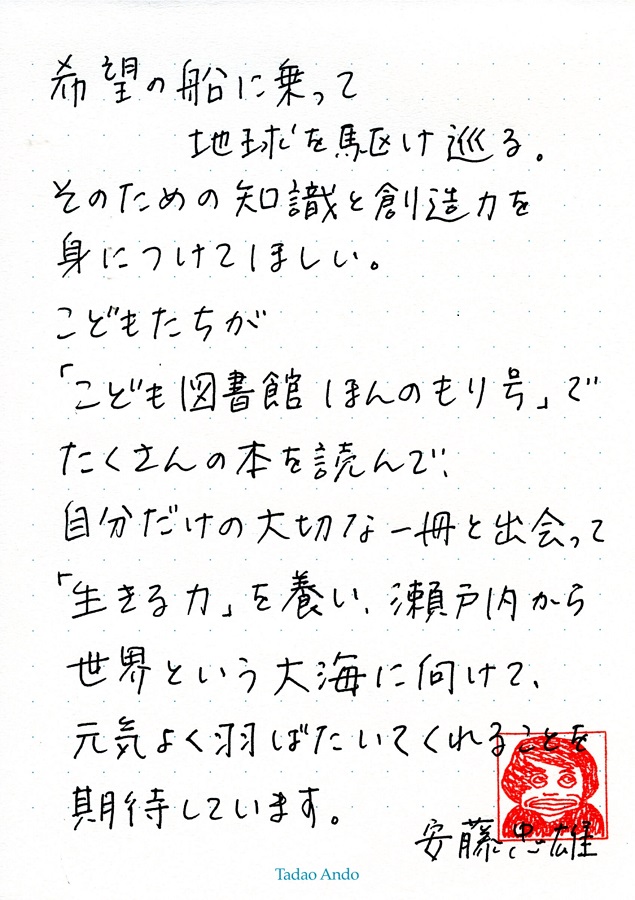 希望の船に乗って
地球を駆け巡る。
そのための知識と創造力を
身につけてほしい。
こどもたちが
「こども図書館 ほんのもり号」で
たくさんの本を読んで、
自分だけの大切な一冊と出会って
「生きる力」を養い、瀬戸内から
世界という大海に向けて、
元気よく羽ばたいてくれることを
期待しています。
安藤忠雄
Tadao Ando